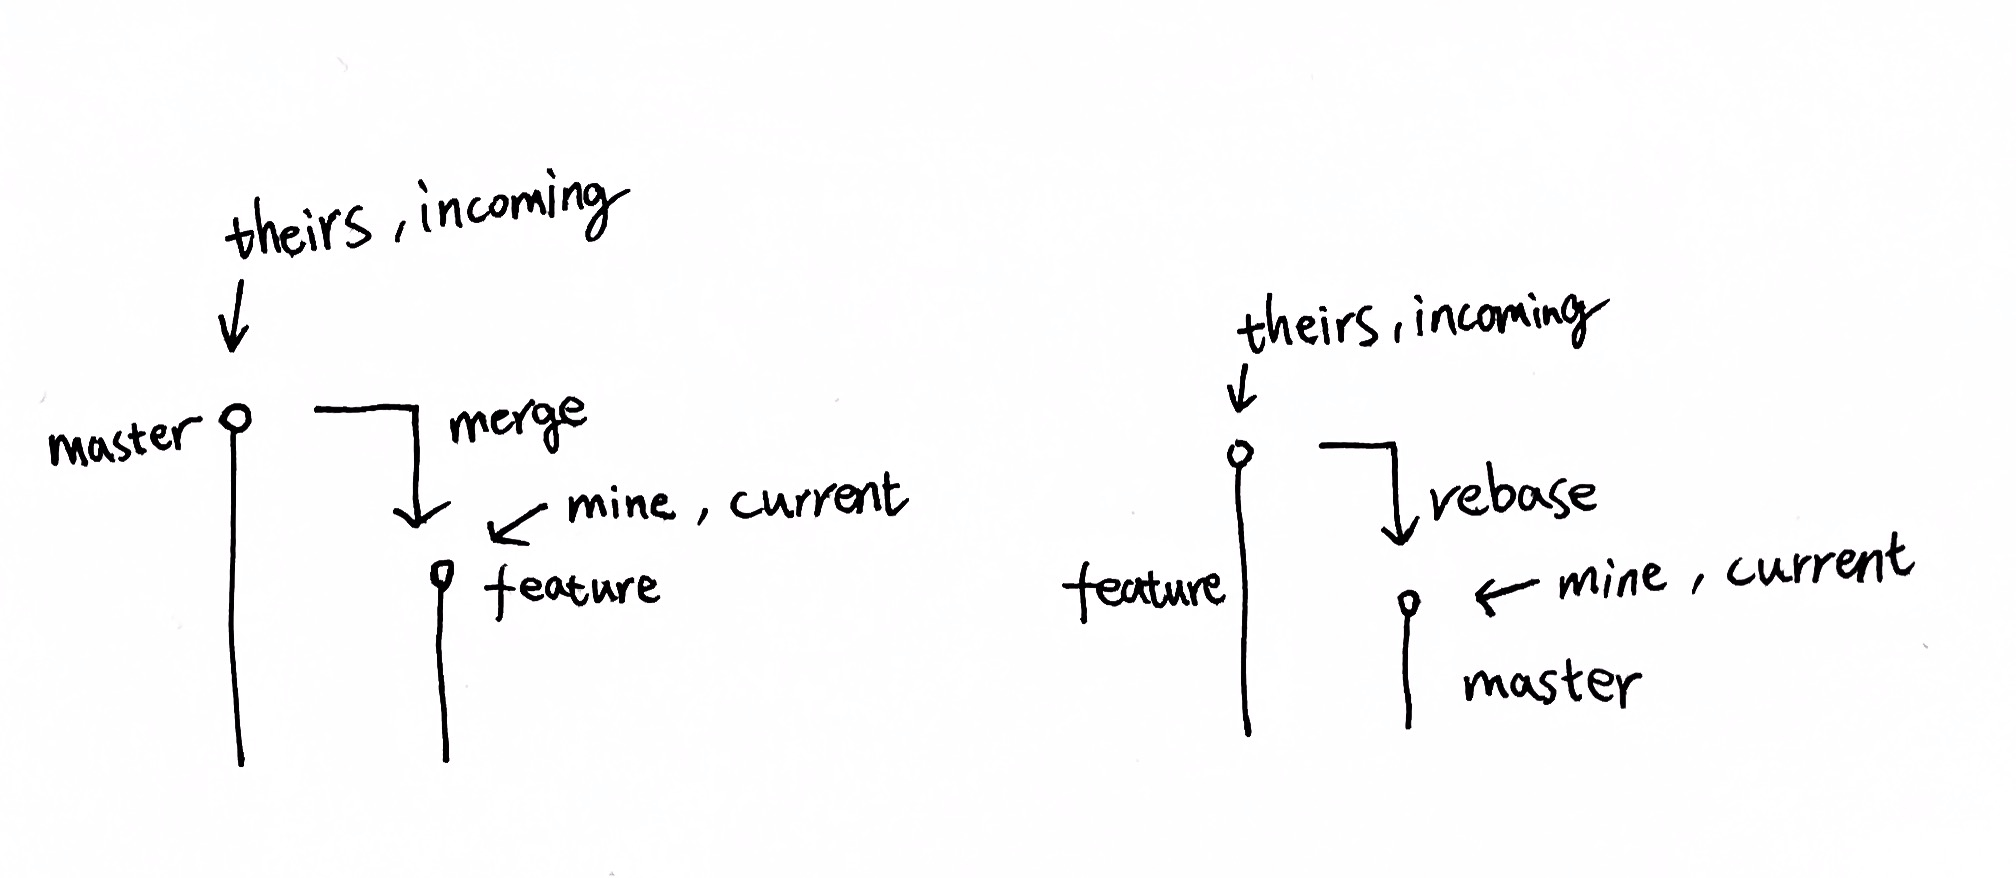 theirs, incoming
master
merge
mine, current
feature
theirs, incoming
rebase
feature
mine, current
master